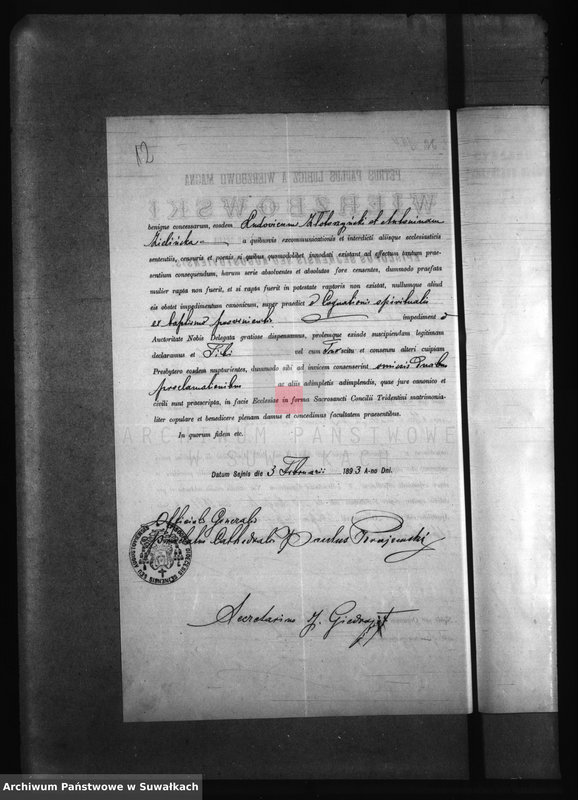 57
benigne concessarum, eosdem Ludovicum Klobszyński et Antoninam
Zielińska a quibusvis excommunicationis et interdicti aliisque ecclesiasticis
sententiis, censuris et poenis si quibus quomodolibet innodati existant ad effectum tantum prae-
sentium consequendum, harum serie absolventes et absolutos fore censentes, dummodo praefata
mulier rapta non fuerit, et si rapta fuerit in potestate raptoris non existat, nullumque aliud
eis obstet impedimentum canonicum, super praedict o Cognationis spiritualis
ex baptismo proveniente impediment o
Auctoritate Nobis Delegata gratiose dispensamus, prolemque exinde suscipiendam legitimam
declaramus et Tibi vel cum Tuo scitu et consensu alteri cuipiam
Presbytero eosdem nupturientes, dummodo sibi ad invicem consenserint omissis duabus
proclamationibus ac aliis adimpletis adimplendis, quae jure canonico et
civili sunt praescripta, in facie Ecclesiae in forma Sacrosancti Concilii Tridentini matrimonia-
liter copulare et benedicere plenam damus et concedimus facultatem praesentibus.
In quorum fidem etc.
Datum Sejnis die 3 Februarii 1893 A-no Dni.
Officialis Generalis
Praelatus Cathedralis Paulus Krajewski
Secretarius J. Giedroyć
ARCHIWUM PAŃSTWOWE
W SUWAŁKACH
Archiwum Państwowe w Suwałkach